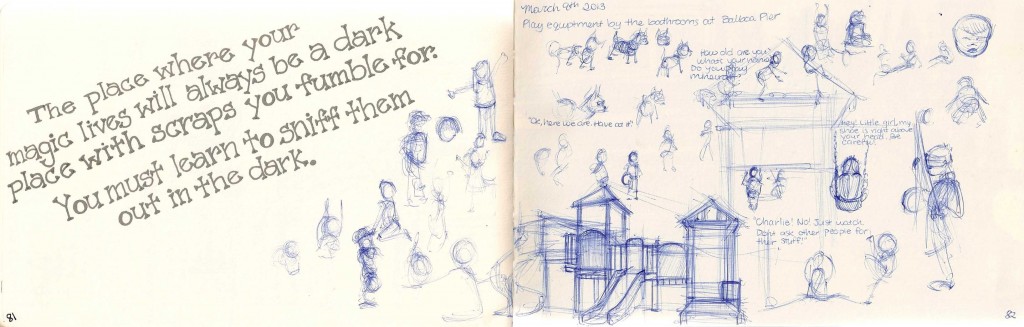 The place where your
magic lives will always be a dark
place with scraps you fumble for.
You must learn to sniff them
out in the dark.
81
March 9th 2013
Play equiptment by the bathrooms at Balboa Pier
How old are you?
whats your name
Do you play
minecraft?
"OK, here we are. Have at it"
Hey! Little girl, my
shoe is right above
your head. Be
careful.
"Charlie! No! Just watch
Dont ask other people for
their stuff!"
82